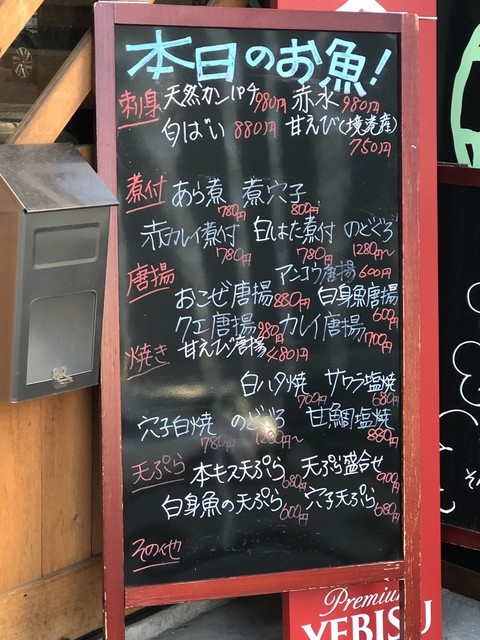 本日のお魚!
刺身 天然カンパチ 980円 赤水 980円
白ばい 880円 甘えび(境港産)
750円
煮付 あら煮 780円 煮穴子 800円
赤カレイ煮付 780円 白はた煮付 780円 のどぐろ 1280円〜
唐揚 アンコウ唐揚 600円
おこぜ唐揚 880円 白身魚唐揚 600円
クエ唐揚 980円 カレイ唐揚 700円
甘えび唐揚 480円
焼き
白ハタ焼 700円 サワラ塩焼 680円
穴子白焼 780円 のどぐろ 1280円〜 甘鯛塩焼 880円
天ぷら 本キス天ぷら 680円 天ぷら盛合せ 900円
白身魚の天ぷら 600円 穴子天ぷら 680円
その他
Premium
YEBISU